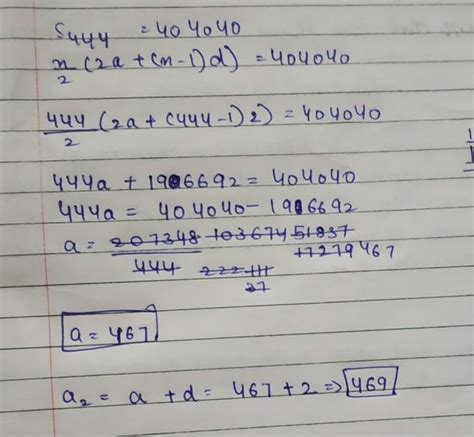 S₄₄₄ = 404040
n/2 (2a + (n-1)d) = 404040
444/2 (2a + (444-1)2) = 404040
444a + 196692 = 404040
444a = 404040 - 196692
a = 207348 103674 51837
17279 467
444 222 111
37
a = 467
a₂ = a + d = 467 + 2 ⇒ 469